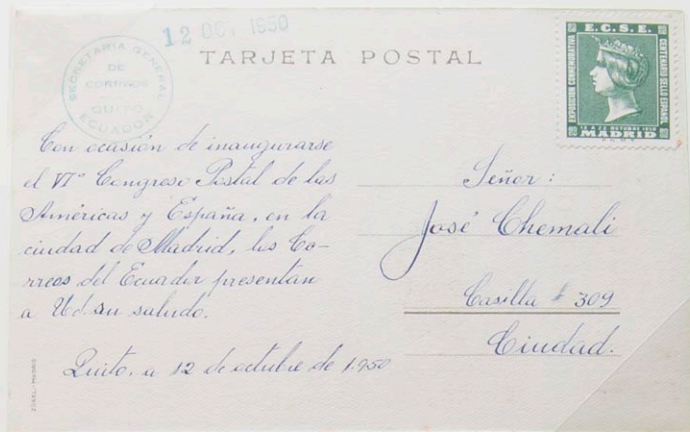 12 OCT 1950
SECRETARIA GENERAL
DE
CORREOS
QUITO
ECUADOR
TARJETA POSTAL
E.C.S.E.
EXPOSICION CONMEMORATIVA
CENTENARIO SELLO ESPAÑOL
12 A 22 OCTUBRE 1950
MADRID
Con ocasión de inaugurarse
el VIº Congreso Postal de las
Américas y España, en la
ciudad de Madrid, los Co-
rreos del Ecuador presentan
a Ud. su saludo.
Quito, a 12 de octubre de 1.950
Señor:
José Chemali
Casilla # 309
Ciudad.